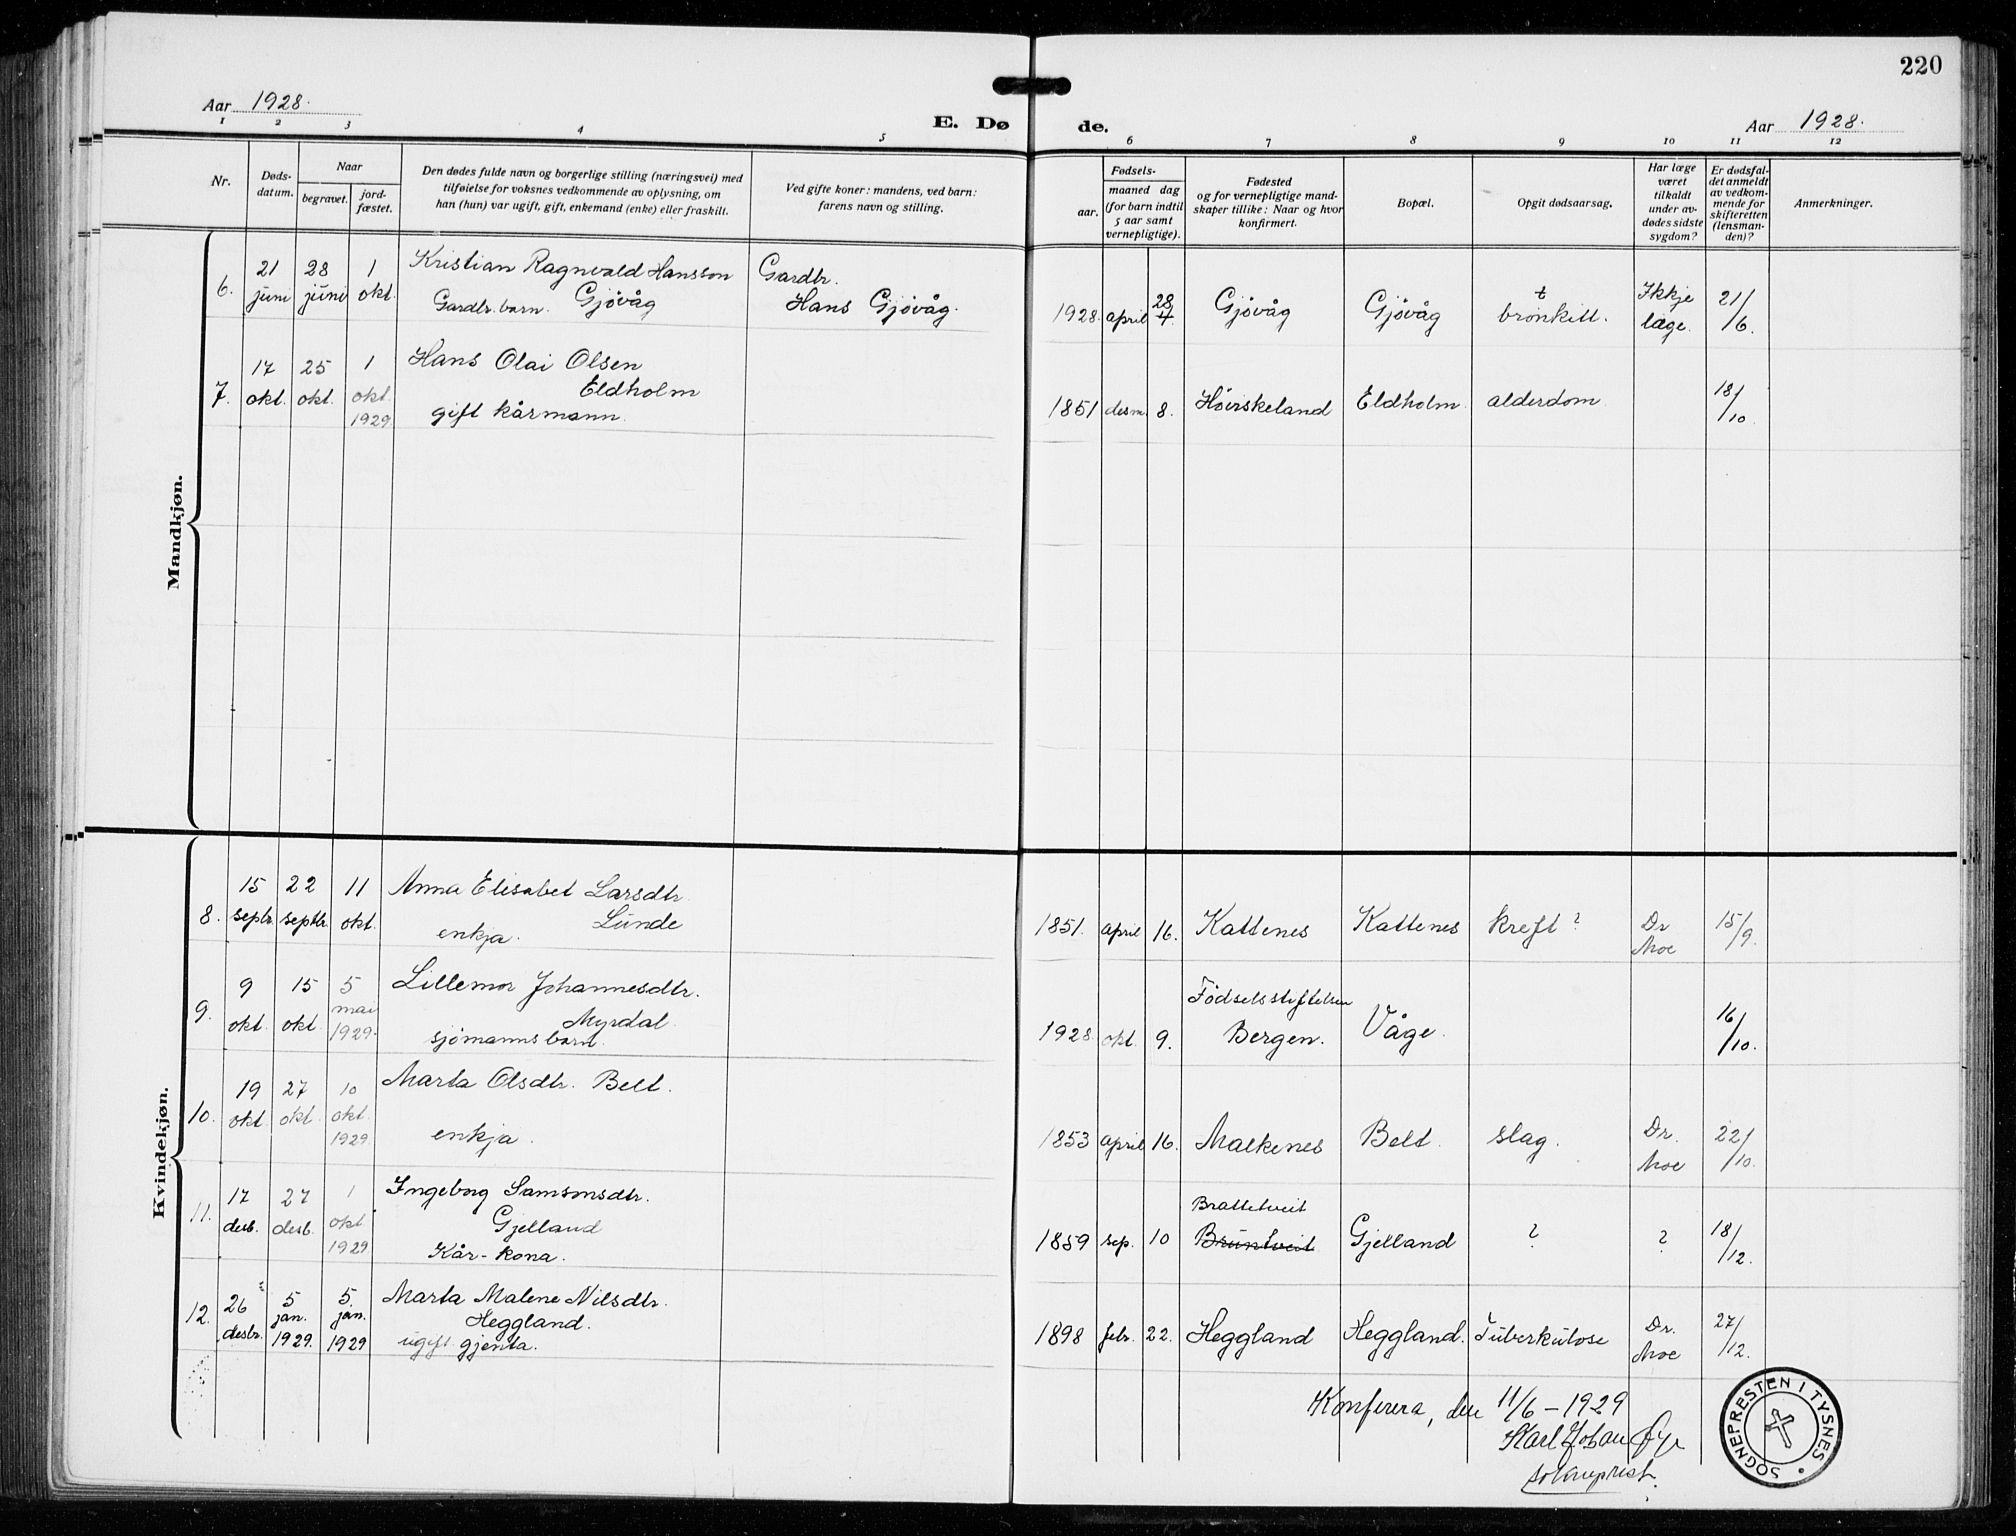 220
Aar 1928.
E. Dø
de.
Aar 1928.
1 2 3 4 5
6 7 8 9 10 11 12
Nr.
Døds-
datum.
Naar
begravet.
jord-
fæstet.
Den dødes fulde navn og borgerlige stilling (næringsvei) med
tilføielse for voksnes vedkommende av oplysning, om
han (hun) var ugift, gift, enkemand (enke) eller fraskilt.
Ved gifte koner: mandens, ved barn:
farens navn og stilling.
Fødsels-
aar.
maaned dag
(for barn indtil
5 aar samt
vernepligtige).
Fødested
og for vernepligtige mand-
skaper tillike: Naar og hvor
konfirmert.
Bopæl.
Opgit dødsaarsag.
Har læge
været
tilkaldt
under av-
dødes sidste
sygdom?
Er dødsfal-
det anmeldt
av vedkom-
mende for
skifteretten
(lensman-
den)?
Anmerkninger.
Mandkjøn.
6. 21 juni 28 juni 1 okt. Kristian Ragnvald Hansson
Gardbr. barn. Gjövåg
Gardbr.
Hans Gjövåg.
1928. april 28/4. Gjövåg Gjövåg bronkitt. Ikkje læge. 21/6.
7. 17 okt. 25 okt. 1 okt. 1929. Hans Olai Olsen
Eldholm
gift kårmann.
1851 desm. 8. Höviskeland Eldholm. alderdom 18/10.
Kvindekjøn.
8. 15 septr. 22 septbr. 11 okt. Anna Elisabet Larsdtr.
Lunde
enkja.
1851. april 16. Kattenes Kattenes kreft? Dr Moe 15/9.
9. 9 okt. 15 okt. 5 mai 1929. Lillemor Johannesdtr.
Myrdal
sjömanns barn.
1928. okt. 9. Födselsstiftelsen
Bergen. Våge. 16/10.
10. 19 okt. 27 okt. 10 okt. 1929 Marta Olsdtr. Belt.
enkja.
1853 april 16. Malkenes Belt. slag. Dr. Moe 22/10.
11. 17 desb. 27 desb. 1 okt 1929 Ingeborg Samsonsdtr.
Gjelland
Kår-kona.
1859 sep. 10 Brattetveit
Bruntveit Gjelland ? ? 18/12.
12. 26 desbr. 5 jan. 1929. 5. jan. 1929 Marta Malene Nilsdtr.
Heggland.
ugift gjenta.
1898 febr. 22. Heggland Heggland. Tuberkulose Dr. Moe 27/12.
Konferera, den 11/6-1929
Karl Johan Øye
sokneprest.
SOGNEPRESTEN I TYSNES